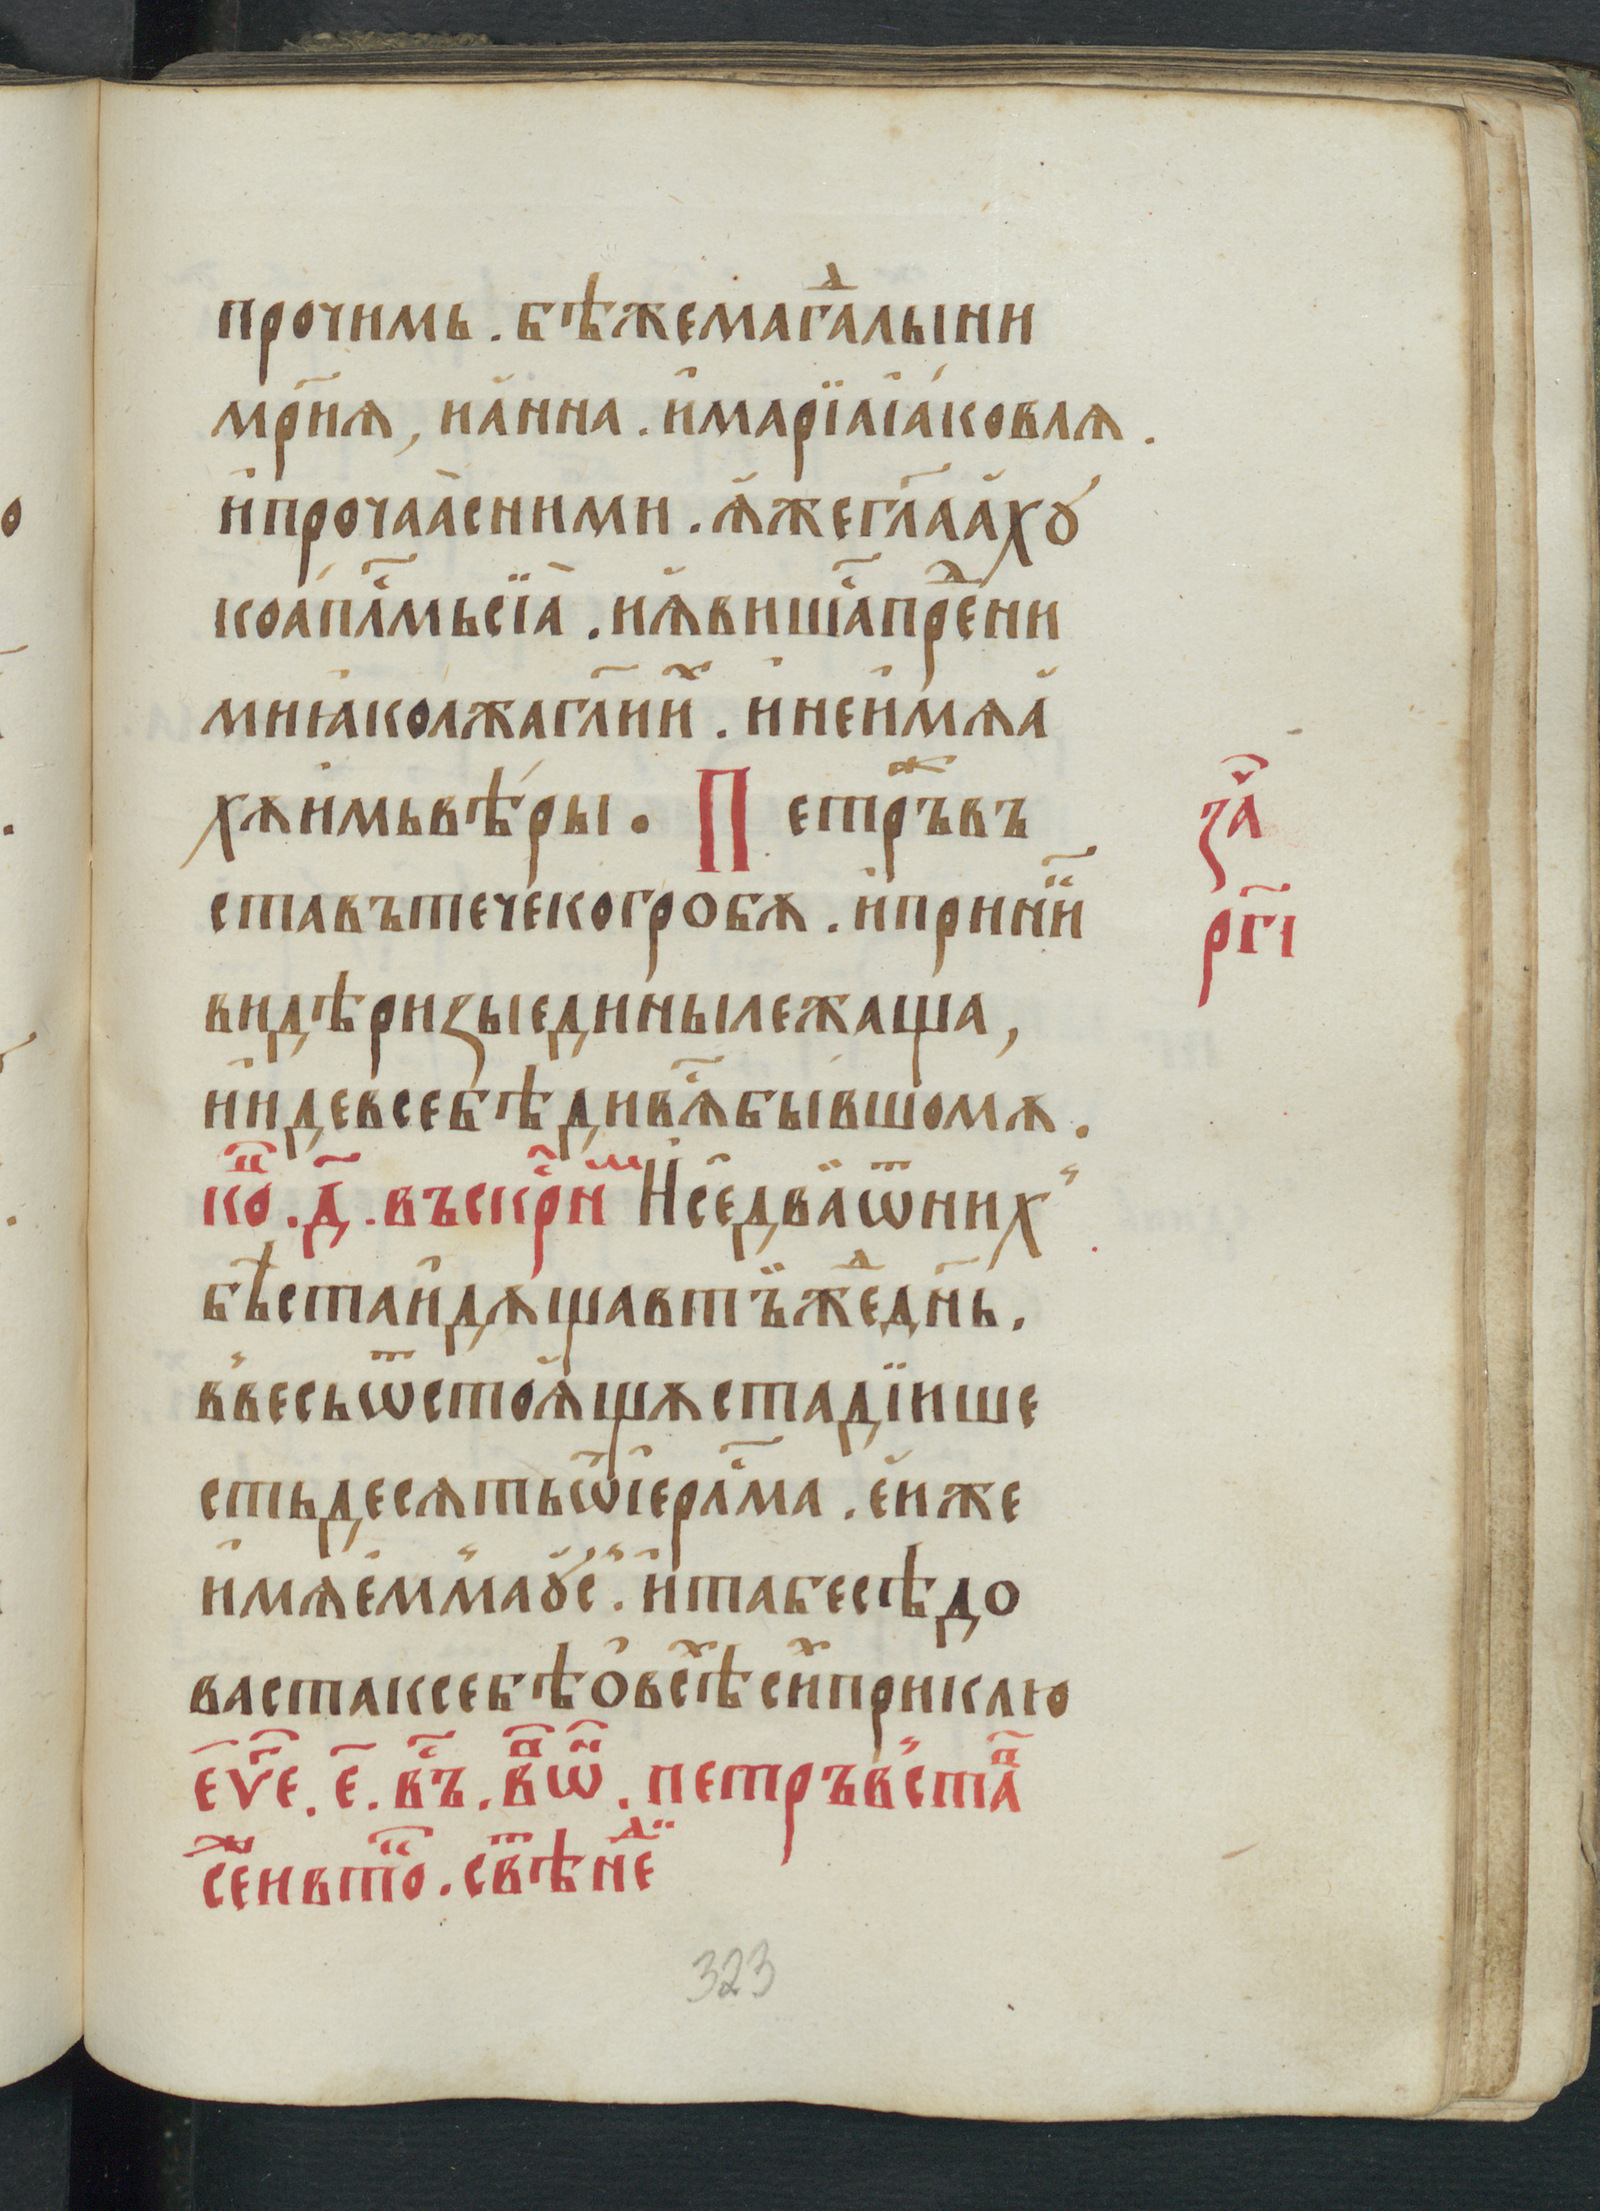 прочимь . бѣжемагⷣалыни
мр҃иѧ , иа҆нна . и҆марїаіа҆ковлѧ .
и҆прочаа҆сними . ꙗ҆жегл҃аа҆хꙋ
коа҆пⷭ҇лмьсїа҆ . иꙗ҆вишⷭ҇апрⷣени
миіа҆колжагл҃иⷯи . и҆неи҆мѧа҆
хѫи҆мьвѣ́ры . Петрⷤъвъ
ставътечекогробѫ . и҆приниⷦ҇
видѣризыединылежаща ,
и҆идевсебѣдивⷭ҇ѧбы́вшомѫ .
кⷪ҇пⷰ . д҃ . въскрⷭ҇нⷲ И҆се҆два҆ѿнихъ
бѣ́стаи҆дѫщавтъ̈жⷣед҃нь .
в̾весьѿстоꙗ҆щѫстадїише
стьдесѧтьѿі҆ерⷭ҇лма . еи҆же
и҆мѧе҆м̾маꙋ҆с̾ . и҆табесѣдо
вастаксебѣо҆всⷯѣсиⷯприклю
еѵⷢ҇е . е҃ . въⷭ҇ . вⷫ҇ѿⷩ҇ . петръв̾стаⷡ҇
сеⷤнвтⷭ҇о . свⷮѣнеⷣ
заⷱ҇
рг҃і
323